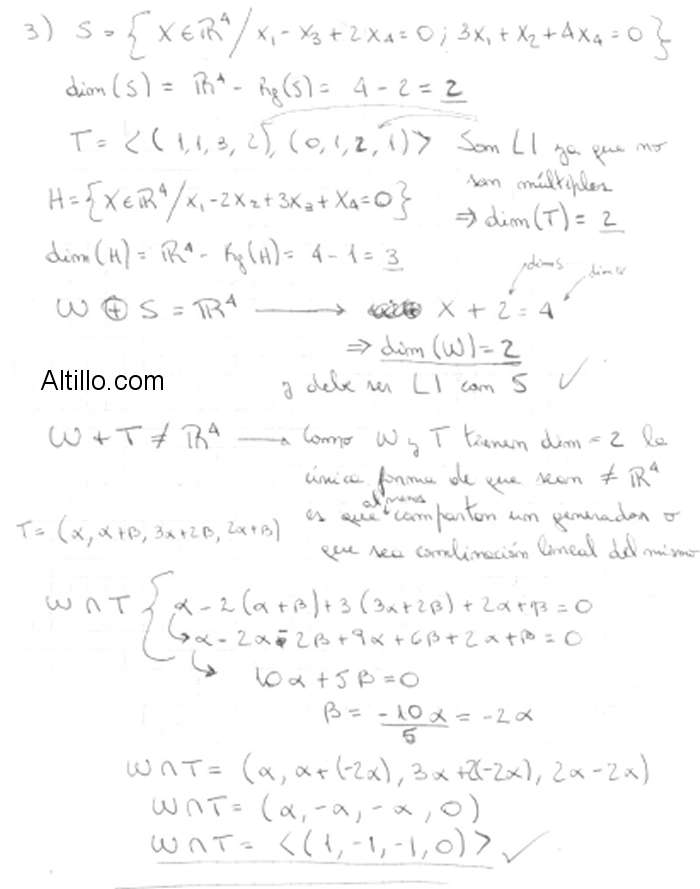 3) S = { X ∈ ℝ⁴ / x₁ - x₃ + 2x₄ = 0 ; 3x₁ + x₂ + 4x₄ = 0 }
dim(S) = ℝ⁴ - Rg(S) = 4 - 2 = 2
T = < (1,1,3,2), (0,1,2,1) > Son LI ya que no
son múltiplos
H = { X ∈ ℝ⁴ / x₁ - 2x₂ + 3x₃ + x₄ = 0 } ⇒ dim(T) = 2
dim(H) = ℝ⁴ - Rg(H) = 4 - 1 = 3
dim S
W ⊕ S = ℝ⁴ → X + 2 = 4
⇒ dim(W) = 2
Altillo.com
y debe ser LI con S ✓
W + T ≠ ℝ⁴ → Como W y T tienen dim = 2 la
única forma de que sean ≠ ℝ⁴
es que al menos compartan un generador o
T = (α, α+β, 3α+2β, 2α+β)
que sea combinación lineal del mismo
W ∩ T { α - 2(α+β) + 3(3α+2β) + 2α + β = 0
α - 2α - 2β + 9α + 6β + 2α + β = 0
10α + 5β = 0
β = -10α/5 = -2α
W ∩ T = (α, α+(-2α), 3α+2(-2α), 2α-2α)
W ∩ T = (α, -α, -α, 0)
W ∩ T = < (1, -1, -1, 0) > ✓